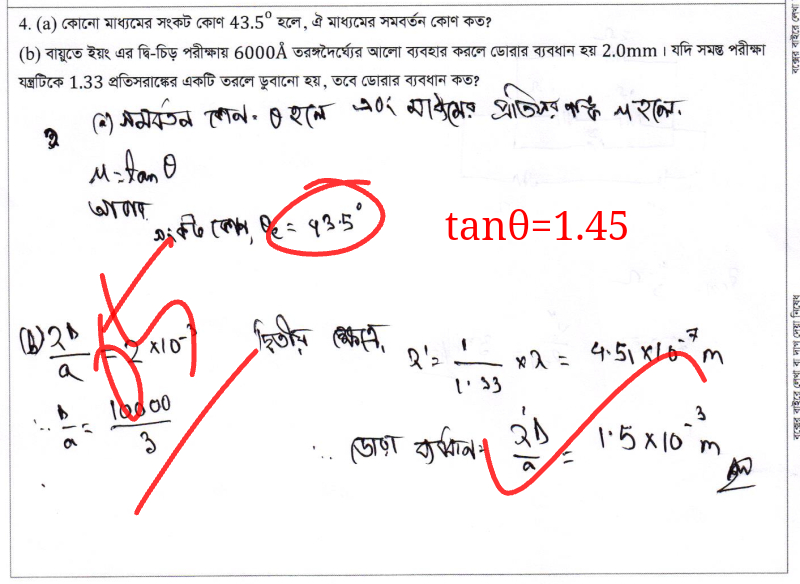 4. (a) কোনো মাধ্যমের সংকট কোণ 43.5° হলে, ঐ মাধ্যমের সমবর্তন কোণ কত?
(b) বায়ুতে ইয়ং এর দ্বি-চিড় পরীক্ষায় 6000Å তরঙ্গদৈর্ঘ্যের আলো ব্যবহার করলে ডোরার ব্যবধান হয় 2.0mm । যদি সমস্ত পরীক্ষা
যন্ত্রটিকে 1.33 প্রতিসরাঙ্কের একটি তরলে ডুবানো হয়, তবে ডোরার ব্যবধান কত?
(a) সমবর্তন কোন θ হলে এবং মাধ্যমের প্রতিসরাঙ্ক μ হলে.
μ = tan θ
আবার
সংকট কোণ, θc = 43.5°
tanθ=1.45
(b) λD/a = 2 ×10⁻³
∴ D/a = 10000/3
দ্বিতীয় ক্ষেত্রে,
λ' = 1/1.33 × λ = 4.51 ×10⁻⁷ m
∴ ডোরা ব্যবধান = λ'D/a = 1.5 ×10⁻³ m